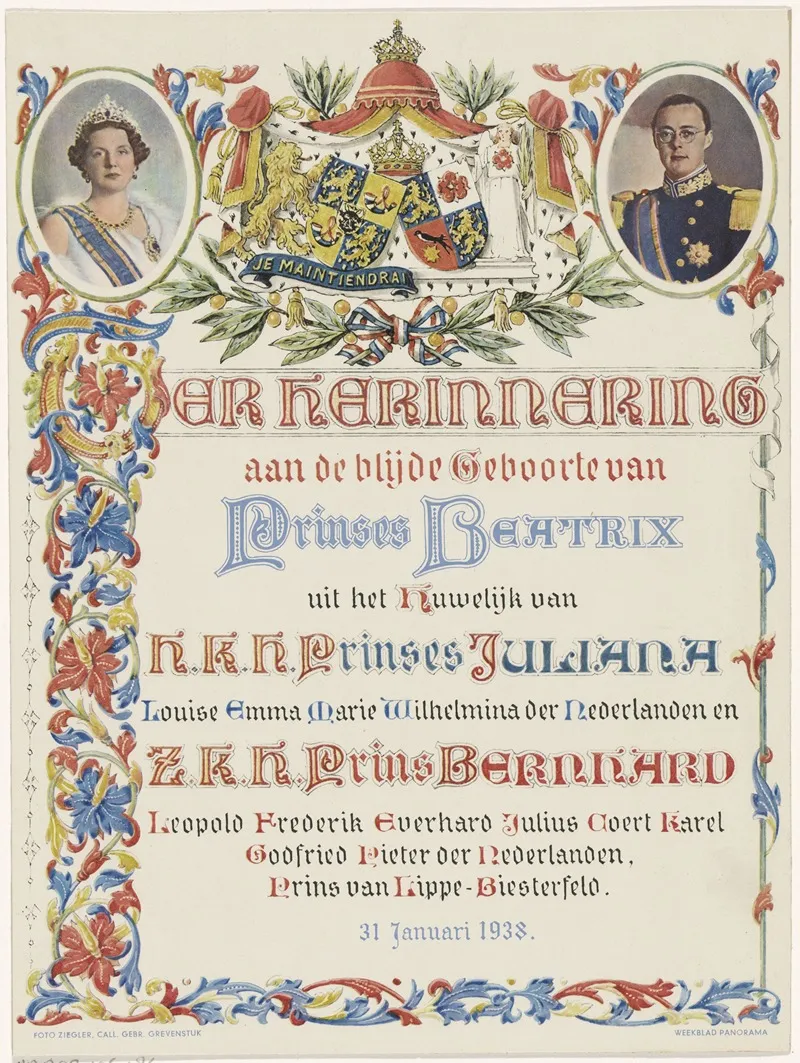 JE MAINTIENDRAI
TER HERINNERING
aan de blijde Geboorte van
Prinses BEATRIX
uit het Huwelijk van
H.K.H. Prinses JULIANA
Louise Emma Marie Wilhelmina der Nederlanden en
Z.K.H. Prins BERNHARD
Leopold Frederik Everhard Julius Coert Karel
Godfried Pieter der Nederlanden,
Prins van Lippe-Biesterfeld.
31 Januari 1938.
FOTO ZIEGLER, CALL. GEBR. GREVENSTUK
WEEKBLAD PANORAMA